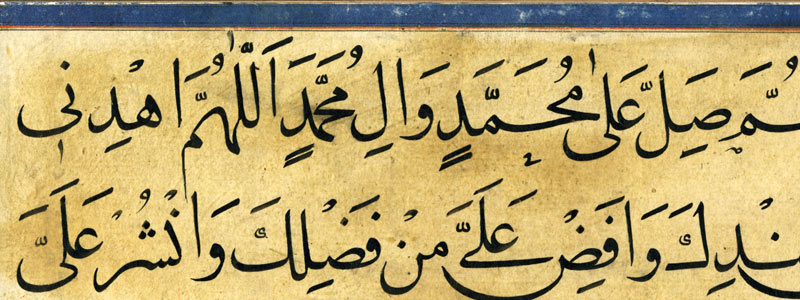 ـهُمَّ صَلِّ عَلىٰ مُحَمَّدٍ وَالِ مُحَمَّدٍ اَللّٰهُمَّ اهْدِنى
ـنْدِكَ وَاَفِضْ عَلَىَّ مِنْ فَضْلِكَ وَانْشُرْ عَلَىَّ